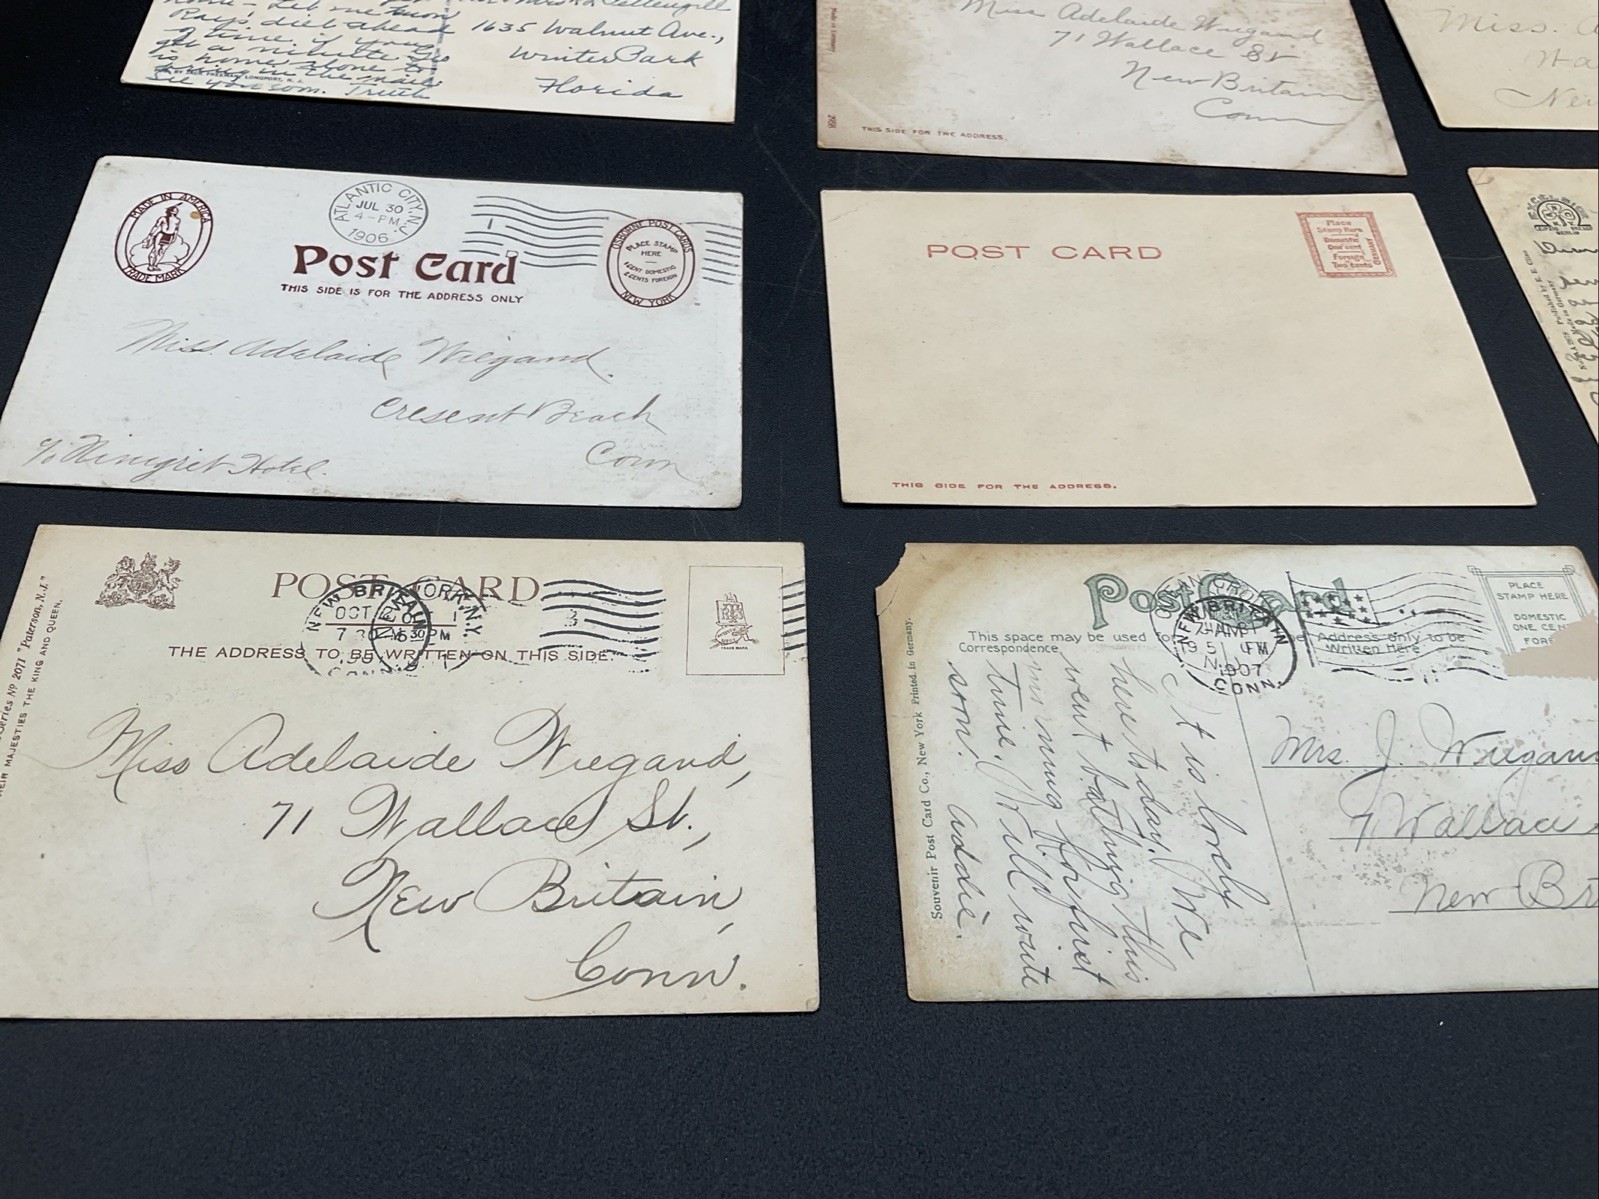 Let me know
Rays, diet ahead
of time, if
get a minute
is home alone to
in the mail
See you soon.
1635 Walnut Ave.,
Winter Park
Florida
Miss Adelaide Wiegand
71 Wallace St
New Britain
Conn
THIS SIDE FOR THE ADDRESS.
Miss. A
Wa
New
MADE IN AMERICA
TRADE MARK
ATLANTIC CITY, N.J.
JUL 30
4-PM
1906
Post Card
THIS SIDE IS FOR THE ADDRESS ONLY
OSBORNE POST CARDS
PLACE STAMP
HERE
1 CENT DOMESTIC
2 CENTS FOREIGN
NEW YORK
Miss. Adelaide Wiegand.
Cresent Beach
Conn
c/o Ninigret Hotel.
POST CARD
Place
Stamp Here
Domestic
One cent
Foreign
Two cents
Germany
THIS SIDE FOR THE ADDRESS.
Series No 2071 "Paterson, N.J."
THEIR MAJESTIES THE KING AND QUEEN.
POST CARD
NEW BRITAIN
OCT
7 30
CONN.
NEW YORK, N.Y.
30 PM
THE ADDRESS TO BE WRITTEN ON THIS SIDE.
TRADE MARK
Miss Adelaide Wiegand,
71 Wallace St.,
New Britain,
Conn.
Souvenir Post Card Co., New York Printed in Germany.
Post Card
This space may be used for
Correspondence
Address only to be
Written Here
NEW BRITAIN
1907
CONN.
PLACE
STAMP HERE
DOMESTIC
ONE CENT
FOR
It is lovely
here to day. We
went bathing this
morning for first
time. Will write
soon. Addie.
Mrs. J. Wiegan
7 Wallace
New Br